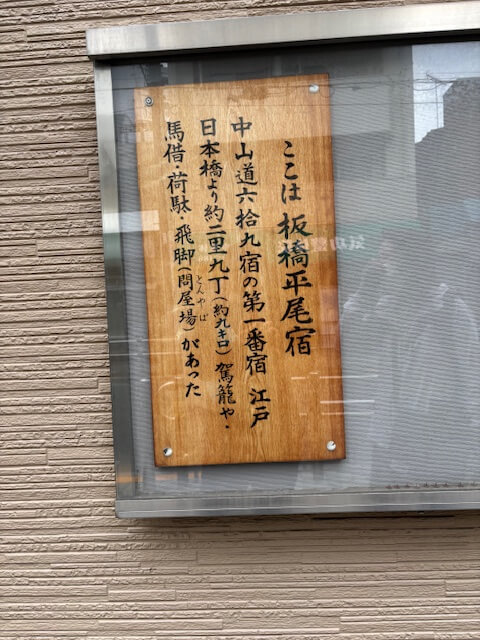 ここは 板橋平尾宿
中山道六拾九宿の第一番宿 江戸
日本橋より約二里九丁(約九キロ) 駕籠や・
馬借・荷駄・飛脚(問屋場)があった
とんやば